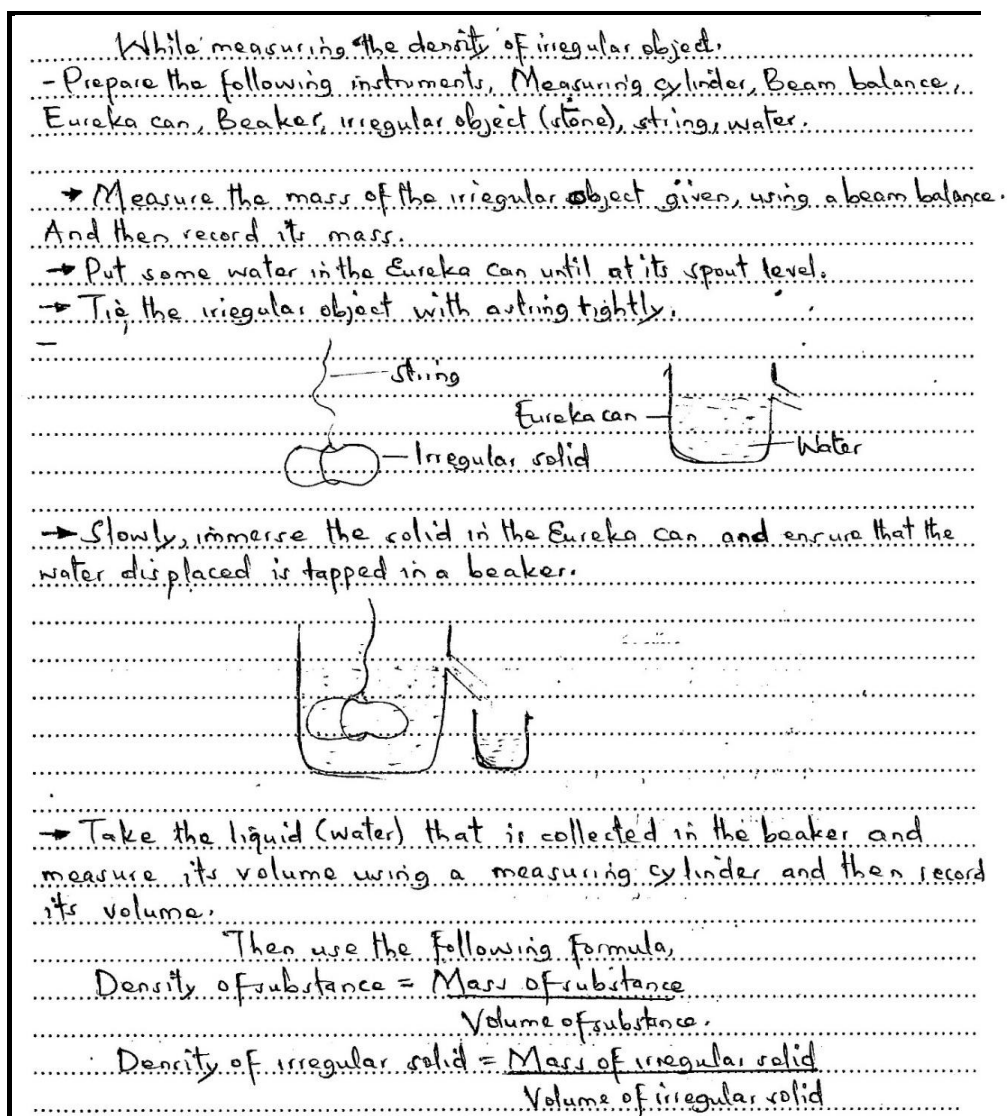 While measuring the density of irregular object.
- Prepare the following instruments, Measuring cylinder, Beam balance,
Eureka can, Beaker, irregular object (stone), string, water.
→ Measure the mass of the irregular object given, using a beam balance.
And then record its mass.
→ Put some water in the Eureka can until at its spout level.
→ Tie the irregular object with astring tightly.
string
Eureka can
Water
Irregular solid
→ Slowly, immerse the solid in the Eureka can and ensure that the
water displaced is tapped in a beaker.
→ Take the liquid (water) that is collected in the beaker and
measure its volume using a measuring cylinder and then record
its volume.
Then use the following formula,
Density of substance = Mass of substance
Volume of substnce.
Density of irregular solid = Mass of irregular solid
Volume of irregular solid